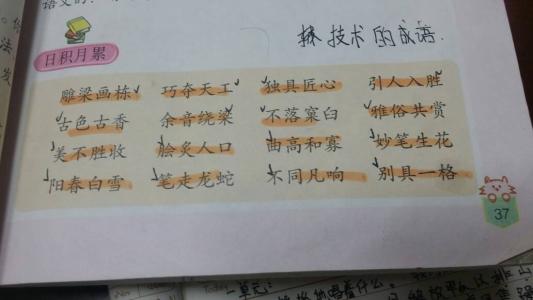 语文的
技术的成语.
日积月累
雕梁画栋 巧夺天工 独具匠心 引人入胜
古色古香 余音绕梁 不落窠臼 雅俗共赏
美不胜收 脍炙人口 曲高和寡 妙笔生花
阳春白雪 笔走龙蛇 不同凡响 别具一格
37
Today
一单元: